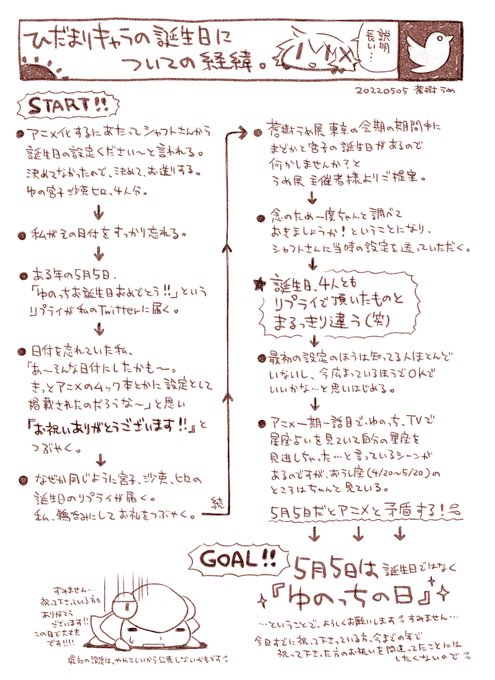 ひだまりキャラの誕生日に
ついての経緯。
説明
長い…
20220505 蒼樹うめ
START!!
●アニメ化するにあたってシャフトさんから
誕生日の設定ください〜と言われる。
決めてなかったので、決めて、お送りする。
ゆの宮子沙英ヒロ、4人分。
↓
●私がその日付をすっかり忘れる。
↓
●ある年の5月5日、
「ゆのっちお誕生日おめでとう!!」という
リプライが私のTwitterに届く。
↓
●日付を忘れていた私、
「あ〜そんな日付にしたかも〜。
きっとアニメのムック本とかに設定として
掲載されたのだろうな〜」と思い
『お祝いありがとうございます!!』と
つぶやく。
↓
●なぜか同じように宮子、沙英、ヒロの
誕生日のリプライが届く。
私、鵜呑みにしてお礼をつぶやく。
続
●蒼樹うめ展 東京の会期の期間中に
まどかと宮子の誕生日があるので
何かしませんか?と
うめ展 主催者様よりご提案。
↓
●念のため一度ちゃんと調べて
おきましょうか!ということになり、
シャフトさんに当時の設定を送っていただく。
↓
★誕生日、4人とも
リプライで頂いたものと
まるっきり違う(笑)
↓
●最初の設定のほうは知ってる人ほとんど
いないし、今広まっているほうでOKで
いいかな…と思いはじめる。
↓
●アニメ一期一話目で、ゆのっち、TVで
星座占いを見ていて自分の星座を
見逃しちゃった…と言っているシーンが
あるのですが、おうし座(4/20〜5/20)の
ところはちゃんと見ている。
5月5日だとアニメと矛盾する!
↓ ↓ ↓
GOAL!!
5月5日は誕生日ではなく
『ゆのっちの日』
…ということで、よろしくお願いします すみません…
今日すでに祝って下さっている方、今までの年で
祝って下さった方のお祝いを間違ってたことには
したくないので
すみません…
祝って下さっている方も
ありがとう
ございます!!
この日で大丈夫
です!!!!
最初の設定は、ややこしいから公表しないかもです